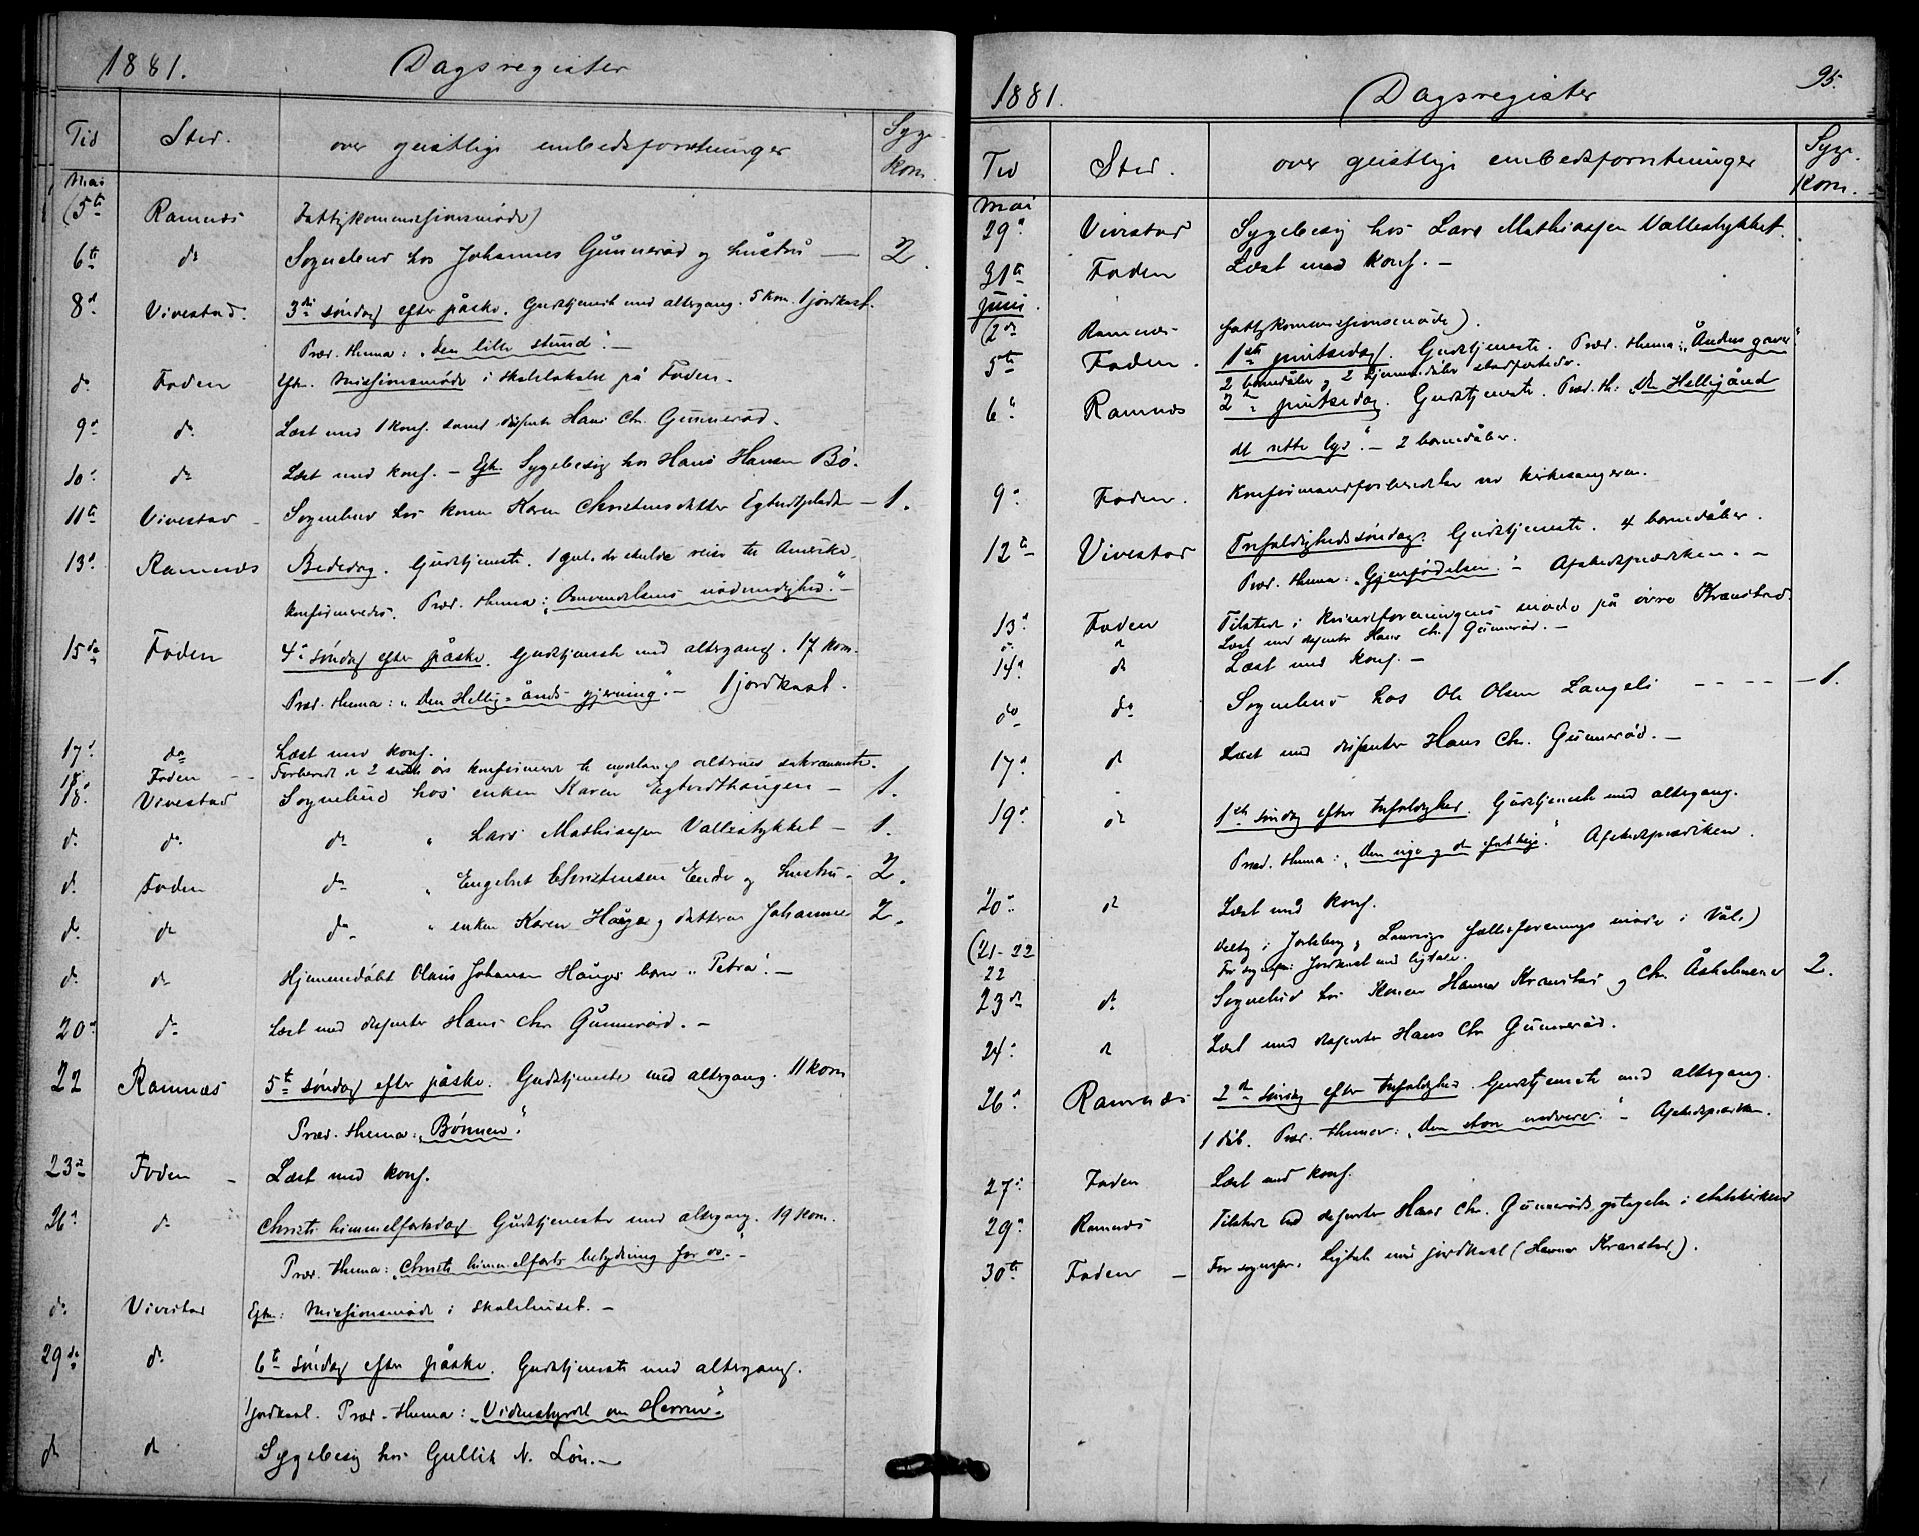 1881. Dagsregister
Tid Sted. over geistlige embedsforretninger Syge-
kom.
Mai
(5te Ramnæs Fattigkommissionsmøde)
6te do Sognebud hos Johannes Gunnerød og hustru — 2.
8de Vivestad. 3die søndag efter påske. Gudstjeneste med altergang. 5 kom. 1 jordkast.
Præd. thema: „Den lille stund“. —
do Foden Eft. Missionsmøde i skolelokalet på Foden.
9de do Læst med 1 konf. samt dissenter Hans Chr. Gunnerød.
10de do Læst med konf. — Eft. Sygebesøg hos Hans Hansen Bø.
11te Vivestad Sognebud hos konen Karen Christensdatter — 1.
13de Ramnæs Bededag. Gudstjeneste. 1 der skulde reise til Amerika
konfirmeredes. Præd. thema: „Omvendelsens nødvendighed“. —
15de Foden 4de søndag efter påske. Gudstjeneste med altergang. 17 kom.
Præd. thema: „Den Hellig-Ånds gjerning“. — 1 jordkast.
17de do Læst med konf.
Foden Forberedt 2 konfirmerede til alterens sakramente.
18de Vivestad Sognebud hos enken Karen — 1.
do do do " Lars Mathiassen Vallestykket — 1.
do Foden do " Engebret Christensen Ende og hustru — 2.
do do do " enken Karen Hauge og datteren Johanne 2.
do do Hjemmedøbt Olaus Johansen Hauges barn „Petra“. —
20de do Læst med dissenter Hans Chr. Gunnerød. —
22 Ramnæs 5te søndag efter påske. Gudstjeneste med altergang. 11 kom
Præd. thema: „Bønnen“.
23de Foden — Læst med konf.
26de do Christi himmelfartsdag Gudstjeneste med altergang. 19 kom.
Præd. thema: „Christi himmelfarts betydning for os“. —
do Vivestad Eftm: Missionsmøde i skolehuset. —
29de do 6te søndag efter påske. Gudstjeneste med altergang.
1 jordkast. Præd. thema: „Vidnesbyrdet om Herren“.
do do Sygebesøg hos Gullik N. Løn. —
1881. Dagsregister 95.
Tid Sted. over geistlige embedsforretninger Syge-
kom.
Mai
29de Vivestad Sygebesøg hos Lars Mathiassen Vallestykket.
31te Foden Læst med konf. —
Juni
(2de Ramnæs Fattigkommissionsmøde).
5te Foden. 1ste pintsedag. Gudstjeneste. Præd. thema: „Åndens gaver“
2 barnedåber og 2 hjemmedåber stadfæstede.
6te Ramnæs 2den pintsedag. Gudstjeneste. Præd. th: „Den Helligånd
det rette lys“. — 2 barnedåber.
9de Foden. Konfirmandforberedelse ved kirkesangeren.
12te Vivestad Trefoldighedssøndag. Gudstjeneste. 4 barnedåber.
Præd. thema: „Gjenfødelsen“. — Afskedsprædiken. —
13de Foden Tilstede i kvindeforeningens møde på øvre Kranstad.
do do Læst med dissenter Hans Chr. Gunnerød. —
14de do Læst med konf. —
do do Sognebud hos Ole Olsen Langeli - - - - — 1.
17de do Læst med dissenter Hans Chr. Gunnerød. —
19de do 1ste søndag efter trefoldighed. Gudstjeneste med altergang.
Præd. thema: „Den rige og den fattige“. Afskedsprædiken.
20de do Læst med konf.
(21-22 i Jarlsberg og Laurvigs fællesforenings møde i Våle)
22 For sognepr. Jordkast med ligtale.
23de do Sognebud hos Konen Hanna Kranstad og Chr. Åskelmener 2.
24de do Læst med dissenter Hans Chr Gunnerød.
26de Ramnæs 2den søndag efter trefoldighed Gudstjeneste med altergang.
1 dåb. Præd. thema: „Den store nadvere“. — Afskedsprædiken.
27de Foden Læst med konf.
29de Ramnæs Tilstede ved dissenter Hans Chr. Gunnerøds optagelse i statskirken
30te Foden — For sognepr. Ligtale med jordkast (Hanna Kranstad).